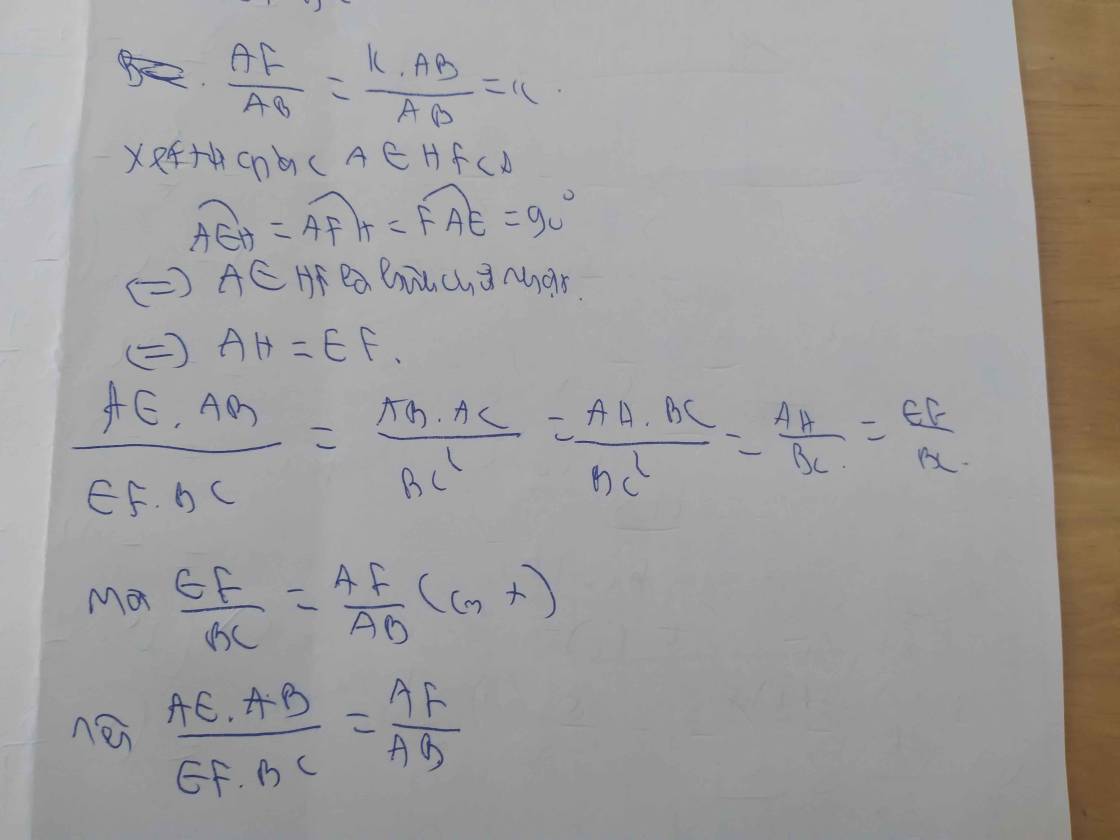 . AF/AB = K.AB/AB = K.
Xét tứ giác AEHF có
AEH = AFH = FAE = 90°
<=> AEHF là hình chữ nhật.
<=> AH = EF.
AE.AB/EF.BC = AB.AC/BC² = AH.BC/BC² = AH/BC. = EF/BC.
Mà EF/BC = AF/AB (cm t)
nên AE.AB/EF.BC = AF/AB